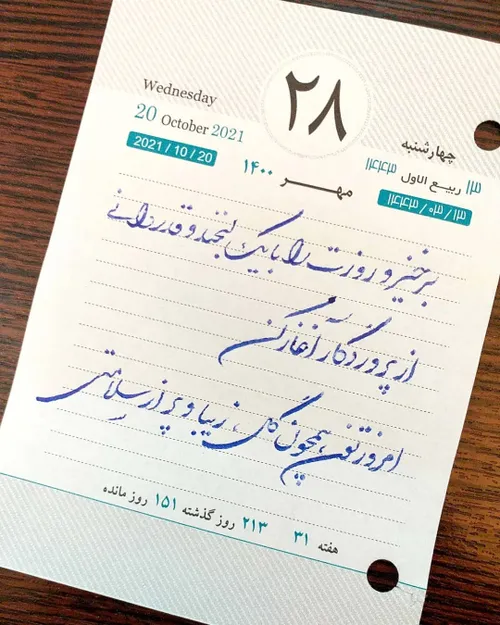 Wednesday
20 October 2021
2021 / 10 / 20
۲۸
مهر ۱۴۰۰
چهارشنبه
۱۳ ربیع الاول ۱۴۴۳
۱۴۴۳ / ۰۳ / ۱۳
برخیز و روزت را با یک لبخند و قدردانی
از پروردگار آغاز کن
امروزتون همچون گل، زیبا و پر از سلامتی
هفته ۳۱ ۲۱۳ روز گذشته ۱۵۱ روز مانده